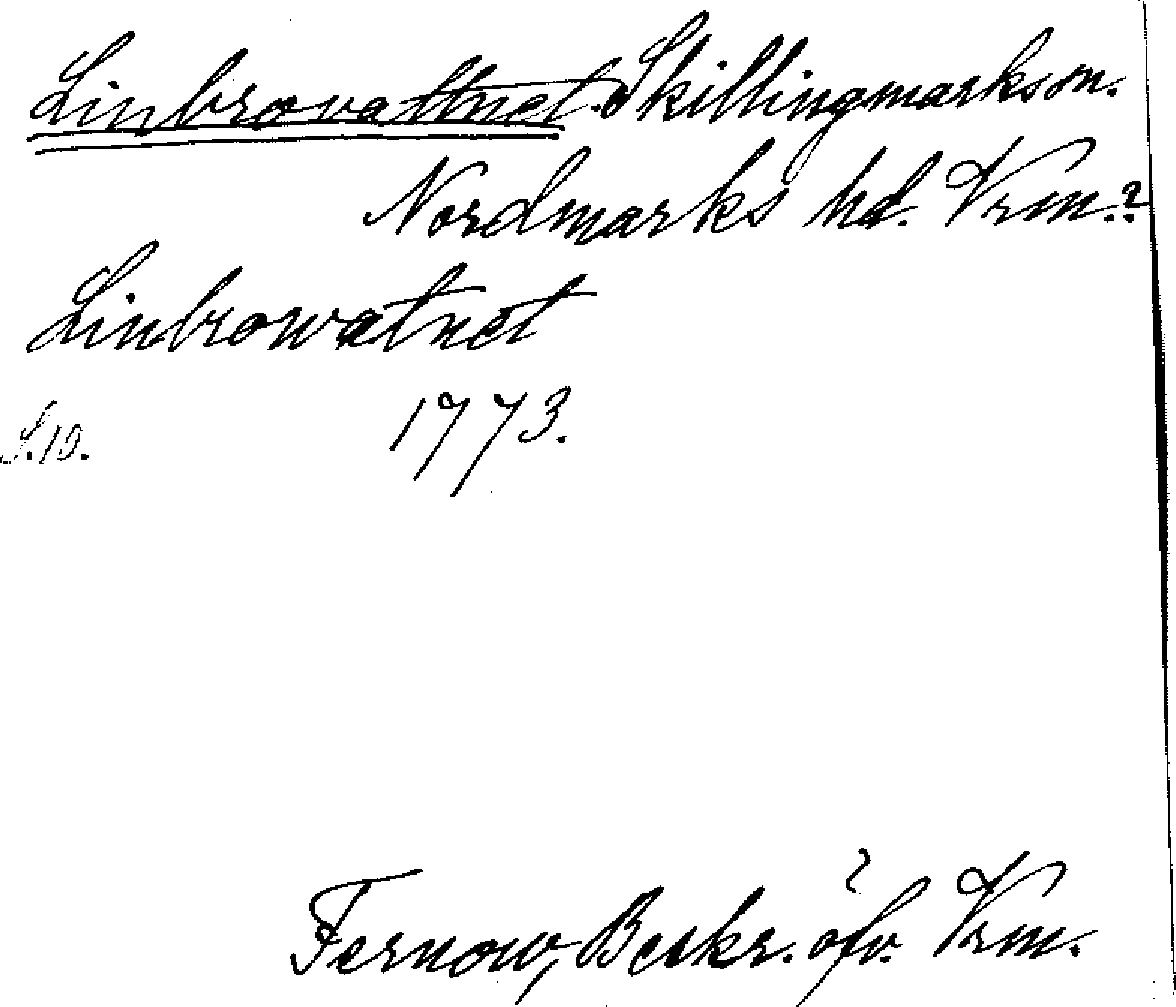 Linbrovattnet. Skillingmarks sn.
Nordmarks hd. Vrm.?
Linbrowatnet
S.10. 1773.
Fernow, Beskr. öfv. Vrm.